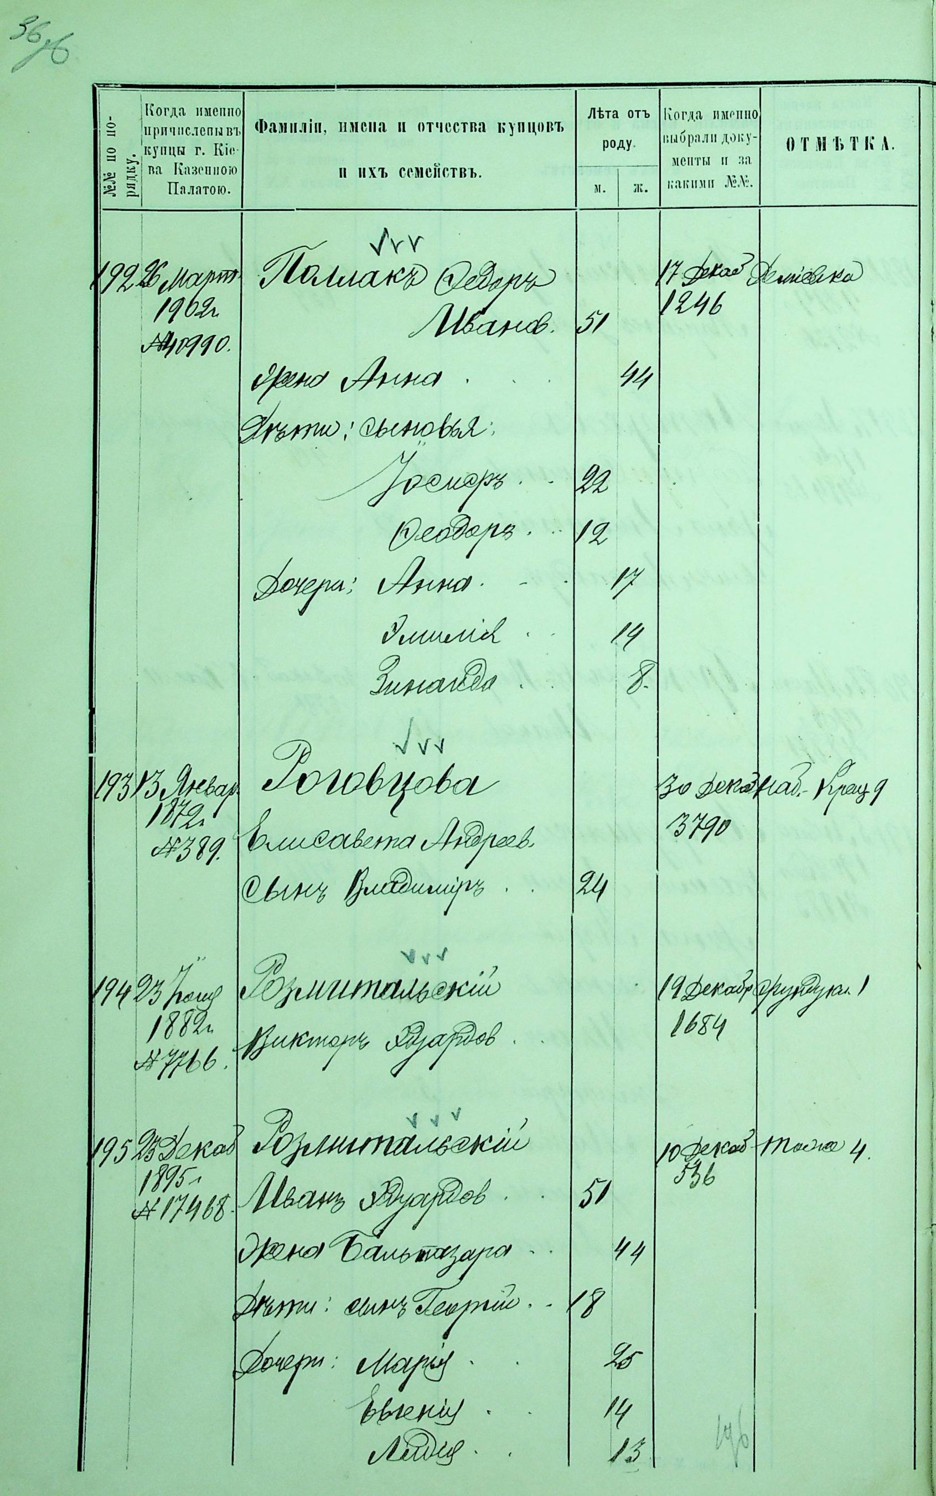 36
№№ по по-
рядку.
Когда именно
причислены въ
купцы г. Кіе-
ва Казенною
Палатою.
Фамиліи, имена и отчества купцовъ
и ихъ семействъ.
Лѣта отъ
роду.
м. ж.
Когда именно
выбрали доку-
менты и за
какими №№.
ОТМѢТКА.
192 26 Март Поллакъ Ѳедоръ 17 Декаб Деміевка
1902г. Иванов. 51 1246
№40990.
Жена Анна 44
Дѣти: сыновья:
Іосифъ 22
Ѳеодоръ 12
Дочери: Анна 17
Эмилія 14
Зинаида 8.
193 13 Январ Роговцова 30 Декаб Наб.-Крещ 9
1872г. Елисавета Андреев. 3790
№389.
сынъ Владиміръ 24
194 23 Розмитальскій 19 Декабр Фундукл. 1
1882г. Викторъ Эдуардов 1684
№7766.
195 23 Декаб Розмитальскій 10 Декаб тоже 4.
1895г. Иванъ Эдуардов 51 536
№17468.
Жена Бальтазара 44
Дѣти: сынъ Георгій 18
Дочери: Марія 25
Евгенія 14
Лидія 13
196